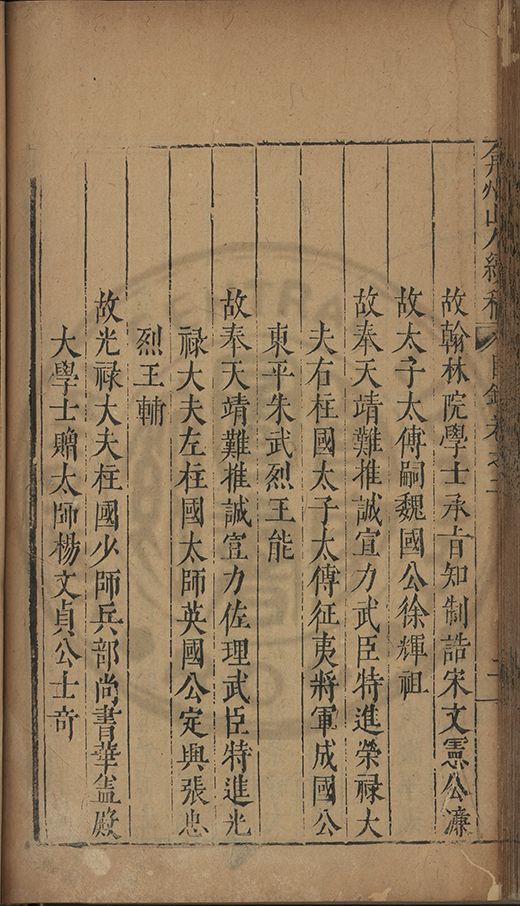 弇州山人續稿 目錄卷之二
故翰林院學士承旨知制誥宋文憲公濂
故太子太傅嗣魏國公徐輝祖
故奉天靖難推誠宣力武臣特進榮祿大
夫右柱國太子太傅征夷將軍成國公
東平朱武烈王能
故奉天靖難推誠宣力佐理武臣特進光
祿大夫左柱國太師英國公定興張忠
烈王輔
故光祿大夫柱國少師兵部尚書華盖殿
大學士贈太師楊文貞公士奇